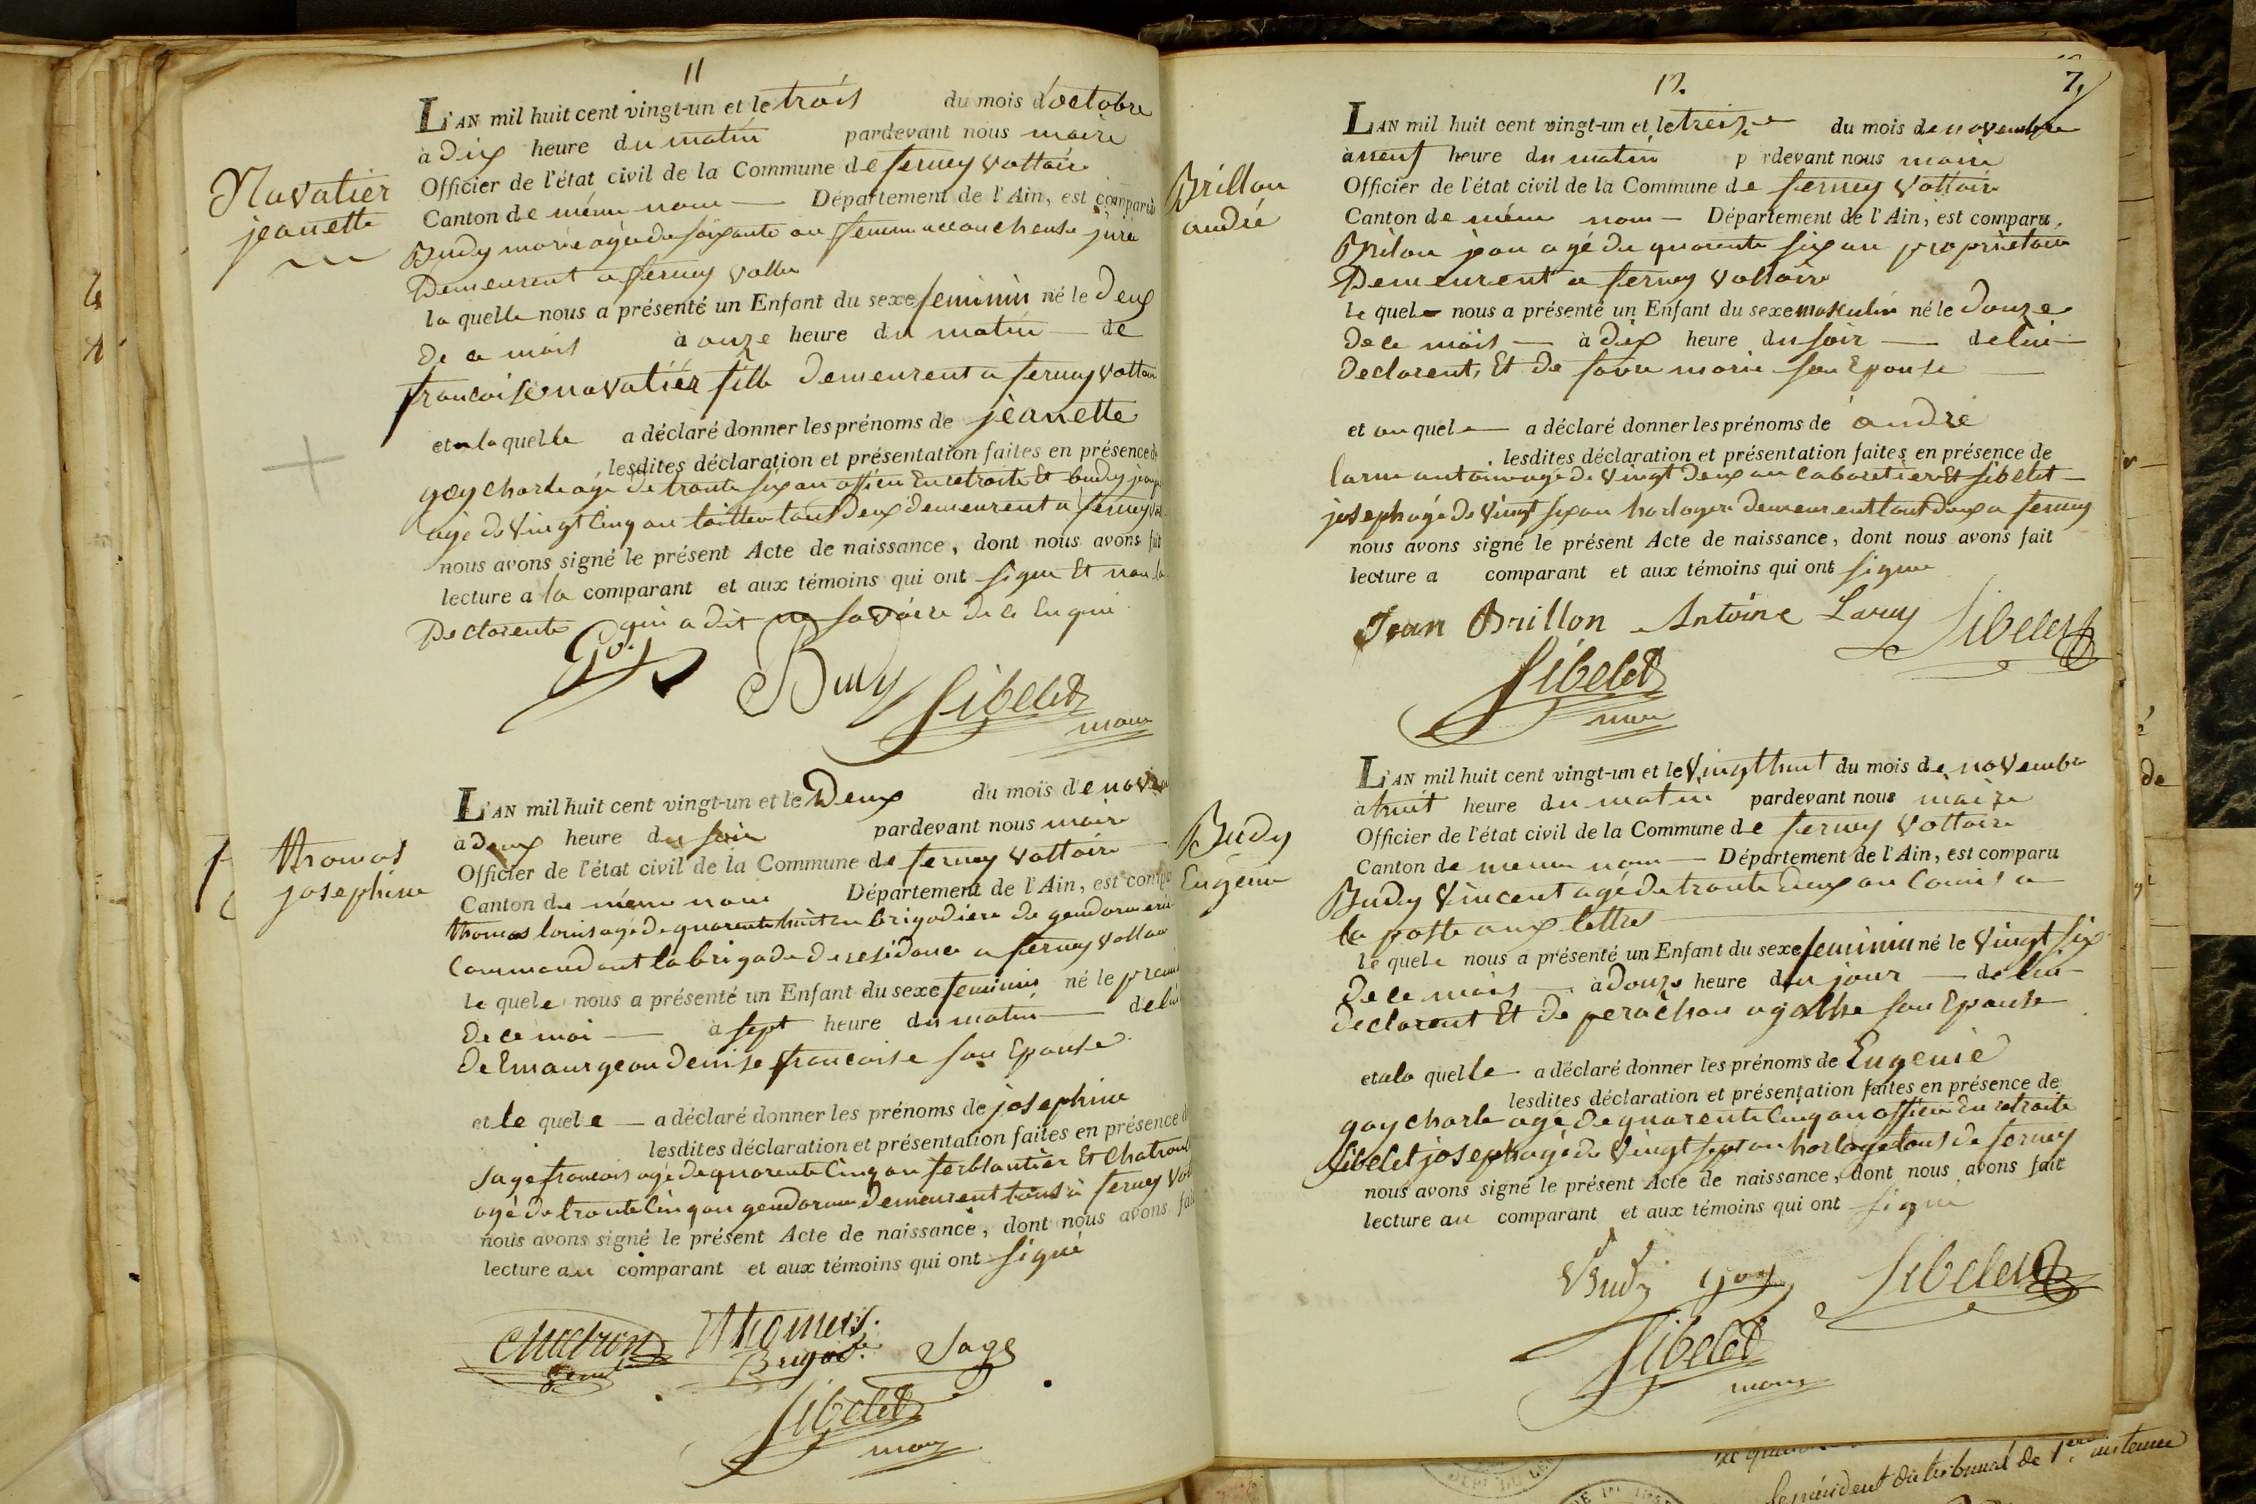 11
L'AN mil huit cent vingt-un et le trois du mois d'octobre
à dix heure du matin pardevant nous maire
Officier de l'état civil de la Commune de ferney voltaire
Canton de même nom — Département de l'Ain, est comparu
Budy marie agée de soixante an femme accoucheuse juré
Demeurent a ferney
la quelle nous a présenté un Enfant du sexe feminin né le deux
De ce mois à onze heure du matin — de
francoise navatier fille demeurent a ferney
et a la quelle a déclaré donner les prénoms de jeanette
lesdites déclaration et présentation faites en présence de
goy charle agé de trante six an officier En retraite Et budy
agé de vingt cinq an tous deux demeurent a ferney
nous avons signé le présent Acte de naissance, dont nous avons fait
lecture a la comparant et aux témoins qui ont signe Et non la
Declarente qui a dit ne savoire de ce Enquié
Goy Budy Sibelet
maire
Navatier
jeanette
L'AN mil huit cent vingt-un et le Deux du mois de
à deux heure du soir pardevant nous maire
Officier de l'état civil de la Commune de ferney voltaire
Canton de même nom Département de l'Ain, est
thomas louis agé de quarente huit an brigadiere de gendarmerie
Commandant la brigade de residance a ferney
le quele nous a présenté un Enfant du sexe feminin né le
De ce moi — à sept heure du matin — de
De Emaurgeon denise francoise son Epouse
et le quele — a déclaré donner les prénoms de josephine
lesdites déclaration et présentation faites en présence
Sage francois agé de quarente Cinq an ferblantier Et
agé de trante Cinq an gendarme demeurent tous à ferney
nous avons signé le présent Acte de naissance, dont nous avons fait
lecture au comparant et aux témoins qui ont signé
Chatron Thomas.
Brigad. Sage
Sibelet
maire
thomas
josephine
12.
7.
L'AN mil huit cent vingt-un et le treize du mois de novembre
à neuf heure du matin p rdevant nous maire
Officier de l'état civil de la Commune de ferney voltaire
Canton de même nom — Département de l'Ain, est comparu
Brilon jean agé de quarente six an proprietaire
Demeurent a ferney voltaire
le quele nous a présenté un Enfant du sexe masculin né le douze
de ce mois — à dix heure du soir — de lui
declarent, Et de favre marie son Epouse
et au quel — a déclaré donner les prénoms de andré
lesdites déclaration et présentation faites en présence de
agé de vingt deux an Cabaretier Et sibelet —
joseph agé de vingt six an horlogere demeurent tout deux a ferney
nous avons signé le présent Acte de naissance, dont nous avons fait
lecture a comparant et aux témoins qui ont signe
Jean Brillon Antoine Larny Sibelet
Sibelet
maire
Brillon
andré
L'AN mil huit cent vingt-un et le vingt huit du mois de novembre
à huit heure du matin pardevant nous maire
Officier de l'état civil de la Commune de ferney voltaire
Canton de meme nom — Département de l'Ain, est comparu
Budy vincent agé de trante deux an Comis a
la poste aux lettres
le quele nous a présenté un Enfant du sexe feminin né le vingt six
De ce mois — à douze heure du jour — de lui
declarent Et de perachon agathe son Epouse
et a la quelle — a déclaré donner les prénoms de Eugenie
lesdites déclaration et présentation faites en présence de
goy charle agé de quarente Cinq an officier En retraite
Sibelet joseph agé de vingt sept an horloge tous de ferney
nous avons signé le présent Acte de naissance, dont nous avons fait
lecture au comparant et aux témoins qui ont signe
Budy Goy Sibelet
Sibelet
maire
Budy
Eugenie
de
président du tribunal de 1ere instance